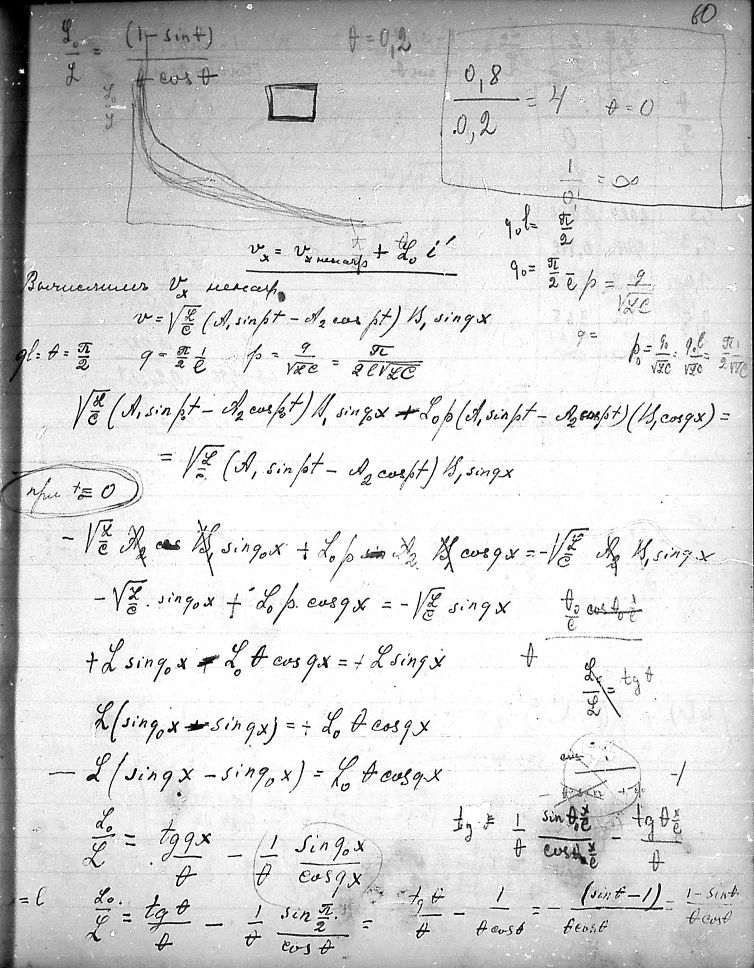 60
L₀/L = (1 - sin t)/(θ cos θ)
θ = 0,2
0,8/0,2 = 4 θ = 0
1/0 = ∞
v_x = v_x ненагр + L₀ i'
q₀l = π/2
q₀ = π/2 1/l p = q/√LC
Вычислимъ v_x ненагр.
v = √L/C (A₁ sin pt - A₂ cos pt) B₁ sin qx
q =
ql = θ = π/2 q = π/2 1/l p = q/√LC = π/2l√LC
p₀ = q₀/√LC = q₀l/√LC = π/2 1/√LC
√L/C (A₁ sin p₀t - A₂ cos p₀t) B₁ sin q₀x + L₀p (A₁ sin pt - A₂ cos pt)(B₁ cos qx) =
= √L/C (A₁ sin pt - A₂ cos pt) B₁ sin qx
при t = 0
- √L/C A₂ B₁ sin q₀x + L₀ p A₂ B₁ cos qx = - √L/C A₂ B₁ sin qx
- √L/C · sin q₀x + L₀ p · cos qx = - √L/C sin qx
+ L sin q₀x - L₀ θ cos qx = + L sin qx
θ
L/2L = tg θ
L (sin q₀x - sin qx) = + L₀ θ cos qx
- L (sin qx - sin q₀x) = L₀ θ cos qx
- 1
L₀/L = tg qx/θ - 1/θ sin q₀x/cos qx
tg = 1/θ sin θ₀ x/l / cos θ x/l - tg θ x/l / θ
= l L₀/L = tg θ/θ - 1/θ sin π/2 / cos θ = tg θ/θ - 1/θ cos θ = - (sin θ - 1)/θ cos θ = 1 - sin θ/θ cos θ